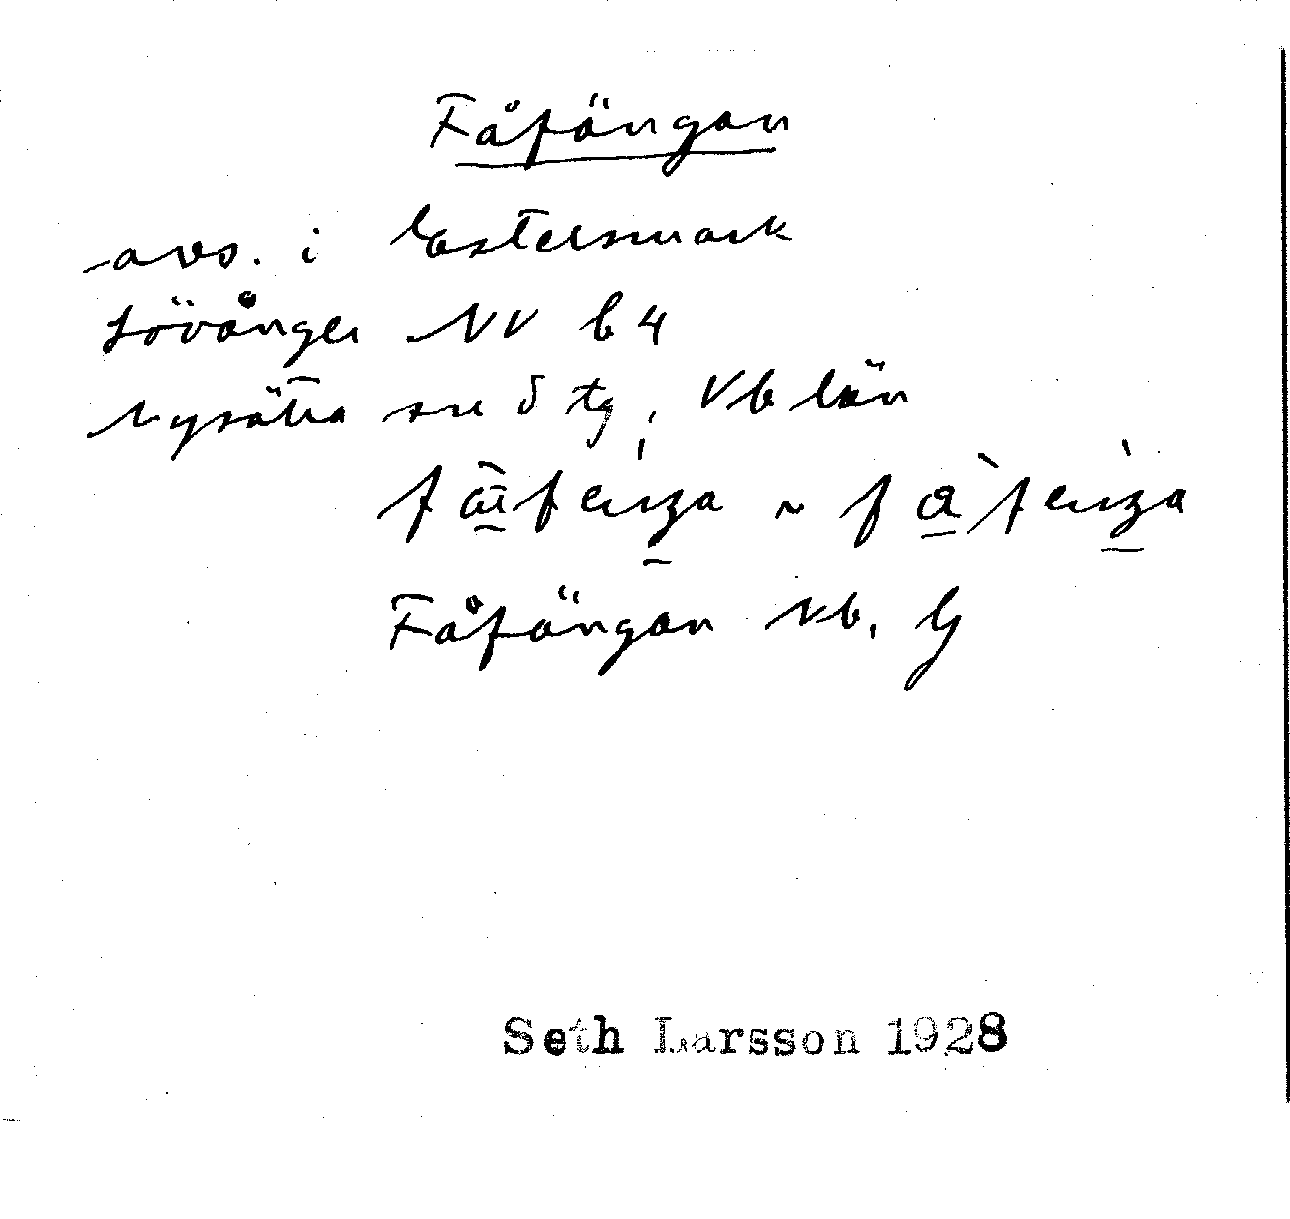 Fåfängan
avs. i Estersmark
Lövånger NV b 4
Nysätra sn o tg, Vb län
Fåfängan Nb. G
Seth Larsson 1928